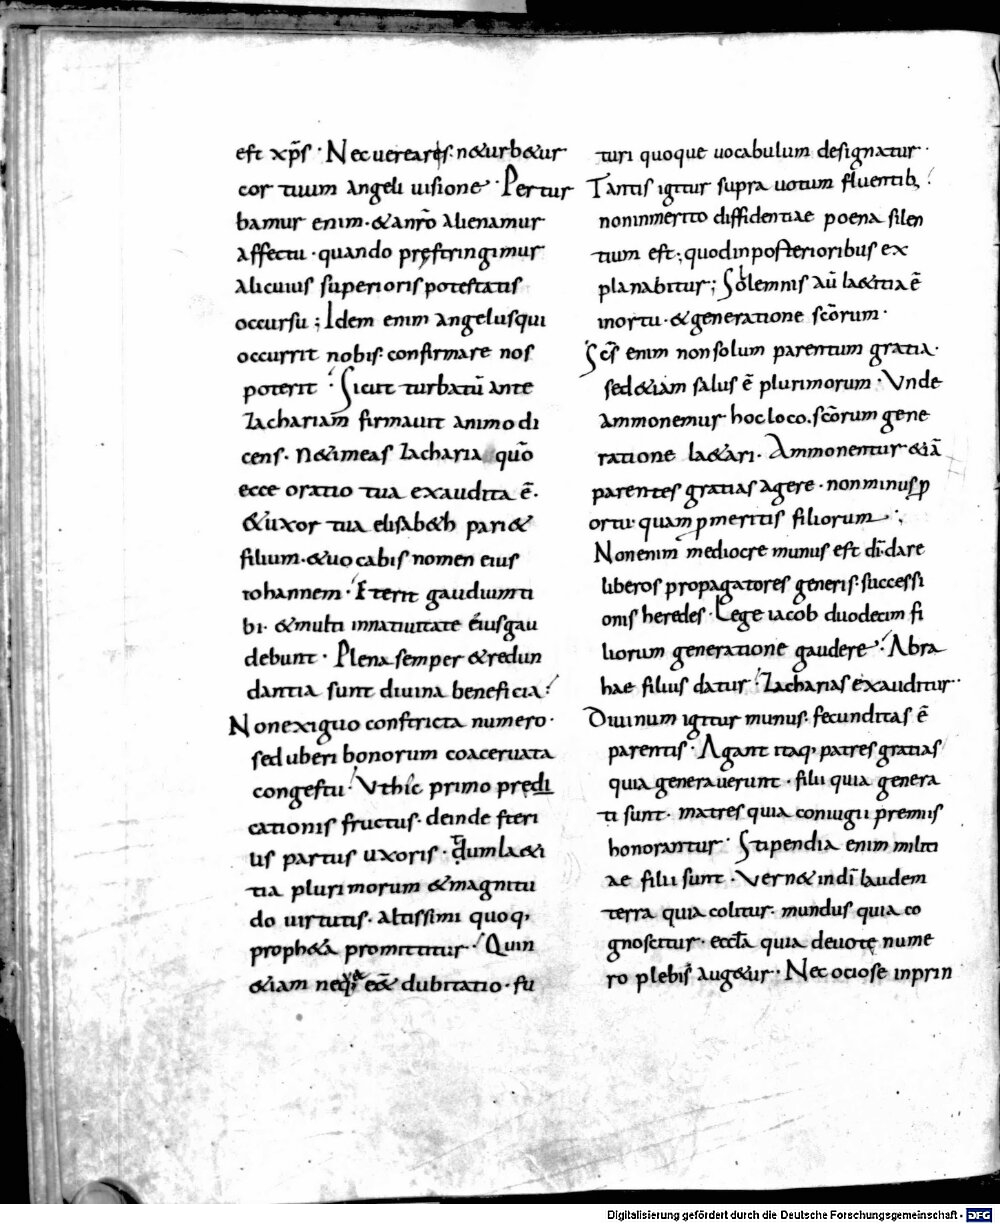 est xp̃s · Nec uerearis · n&urb&ur
cor tuum angeli uisione · Pertur
bamur enim · & anr̃o alienamur
affectu · quando pręstringimur
alicuius superioris potestatis
occursu ; Idem enim angelus qui
occurrit nobis · confirmare nos
poterit · Sicut turbatũ ante
Zachariam̃ firmauit animo di
cens · N&imeas Zacharia quõ
ecce oratio tua exaudita ẽ ·
&uxor tua elisab&h pari&
filium · &uocabis nomen eius
iohannem · Eterit gaudium ti
bi · &multi innatiuitate eius gau
debunt · Plena semper &redun
dantia sunt diuina beneficia ·
Non exiguo constricta numero ·
sed uberi bonorum coaceruata
congestu · Vt hic primo prędi
cationis fructus · deinde steri
lis partus uxoris · Tum la&i
tia plurimorum &magnitu
do uirtutis · altissimi quoq,
proph&a promittitur · Quin
&iam neq, e& dubitatio · fu
turi quoque uocabulum designatur ·
Tantis igitur supra uotum fluentib,
non inmerito diffidentiae poena silen
tium est ; quod inposterioribus ex
planabitur ; Solemnis aũ la&itia ẽ
inortu · &generatione scõrum ·
Scs̃ enim non solum parentum gratia ·
sed &iam salus ẽ plurimorum · Vnde
ammonemur hoc loco · scõrum gene
ratione la&ari · Ammonentur &iã
parentes gratias agere · non minus p
ortu quam p meritis filiorum ·
Non enim mediocre munus est dĩ · dare
liberos propagatores generis · successi
onis heredes · Lege iacob duodecim fi
liorum generatione gaudere · Abra
hae filius datur · Zacharias exauditur ·
Diuinum igitur munus · fecunditas ẽ
parentis · Agant itaq, patres gratias
quia generauerunt · filii quia genera
ti sunt · matres quia coniugii premiis
honorantur · Stipendia enim militi
ae filii sunt · Vern& indĩ laudem
terra quia colitur · mundus quia co
gnoscitur · eccl̃a quia deuotę nume
ro plebis aug&ur · Nec ociose inprin
Digitalisierung gefördert durch die Deutsche Forschungsgemeinschaft - DFG